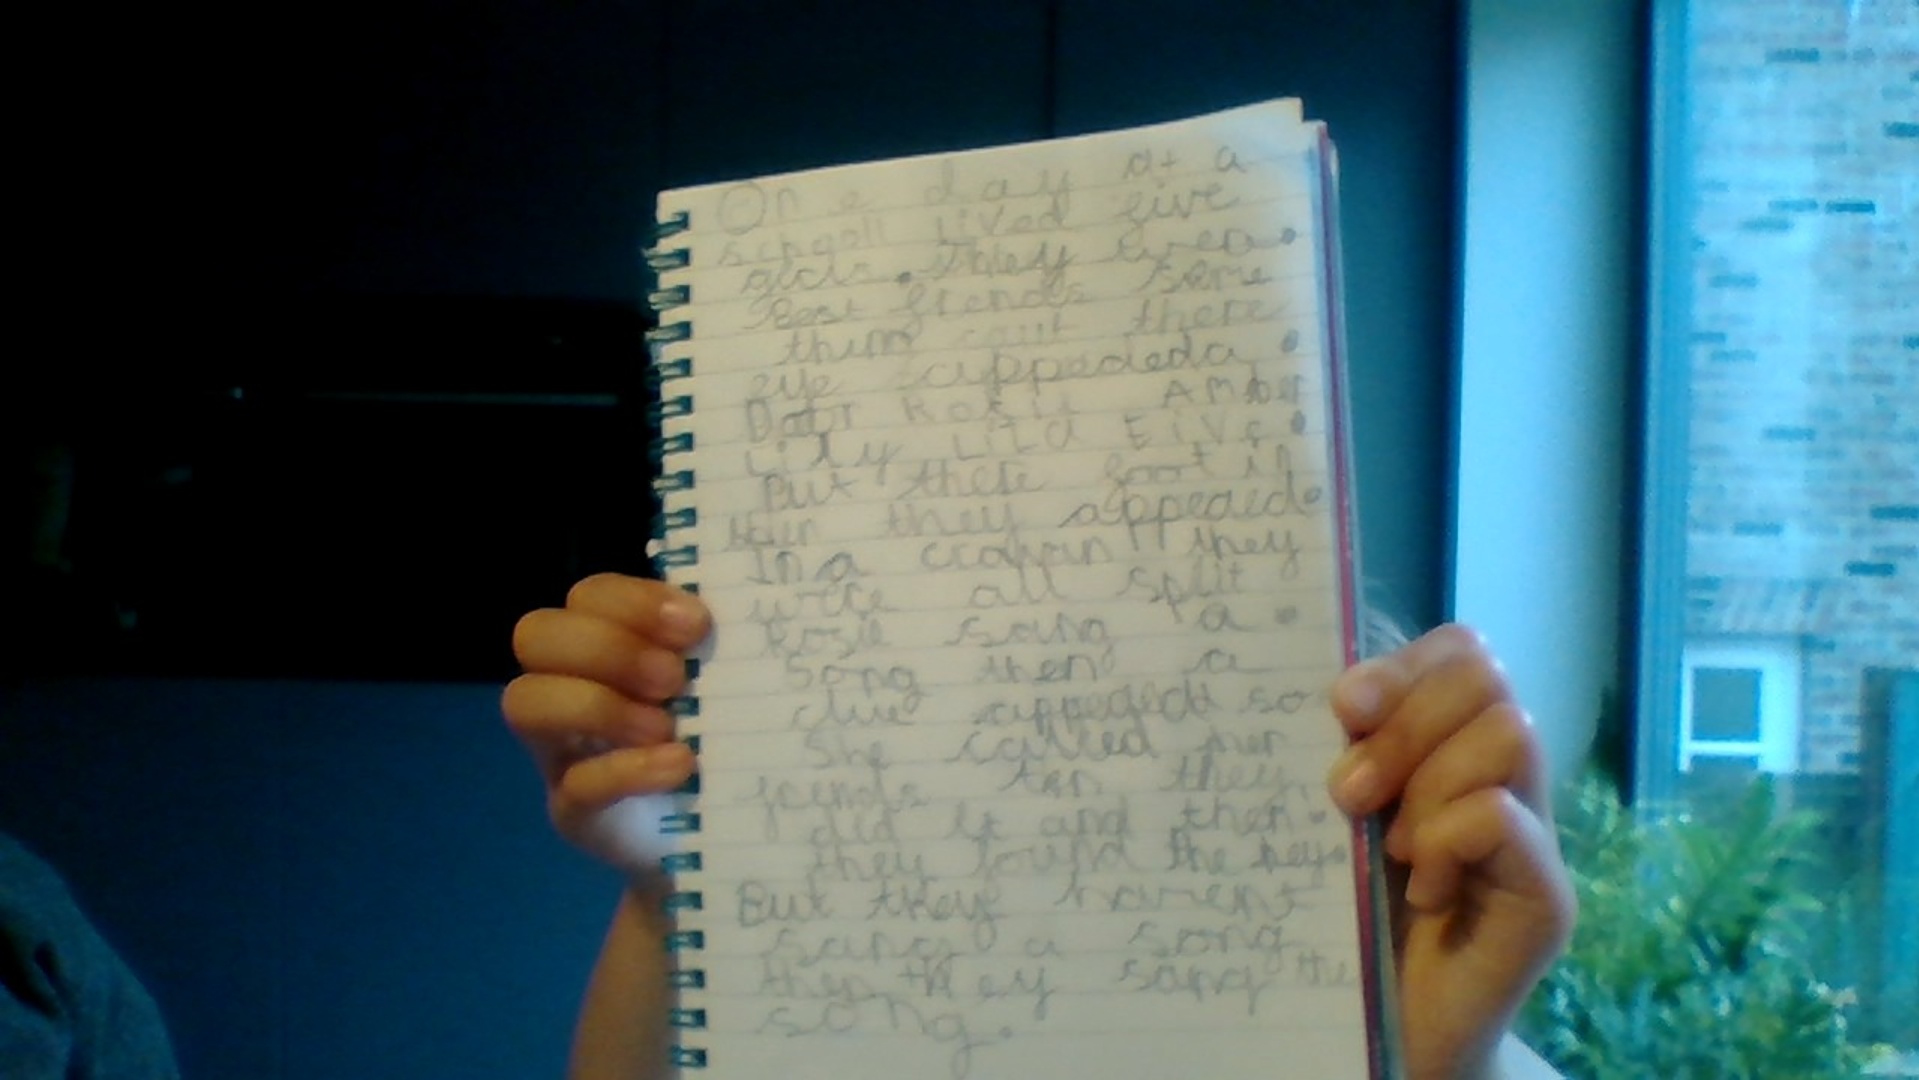 One day at a
school lived five
girls. they wer
Best friends some
thim there
eye appededa
Rosie AMber
Lily LiLa
But there foot in
they appeded
In a they
were all split
Rosie sang a
song then a
clue appeded so
She called her
friends they
did it and then
they found the key
But they havent
sang a song
then they sang the
song.